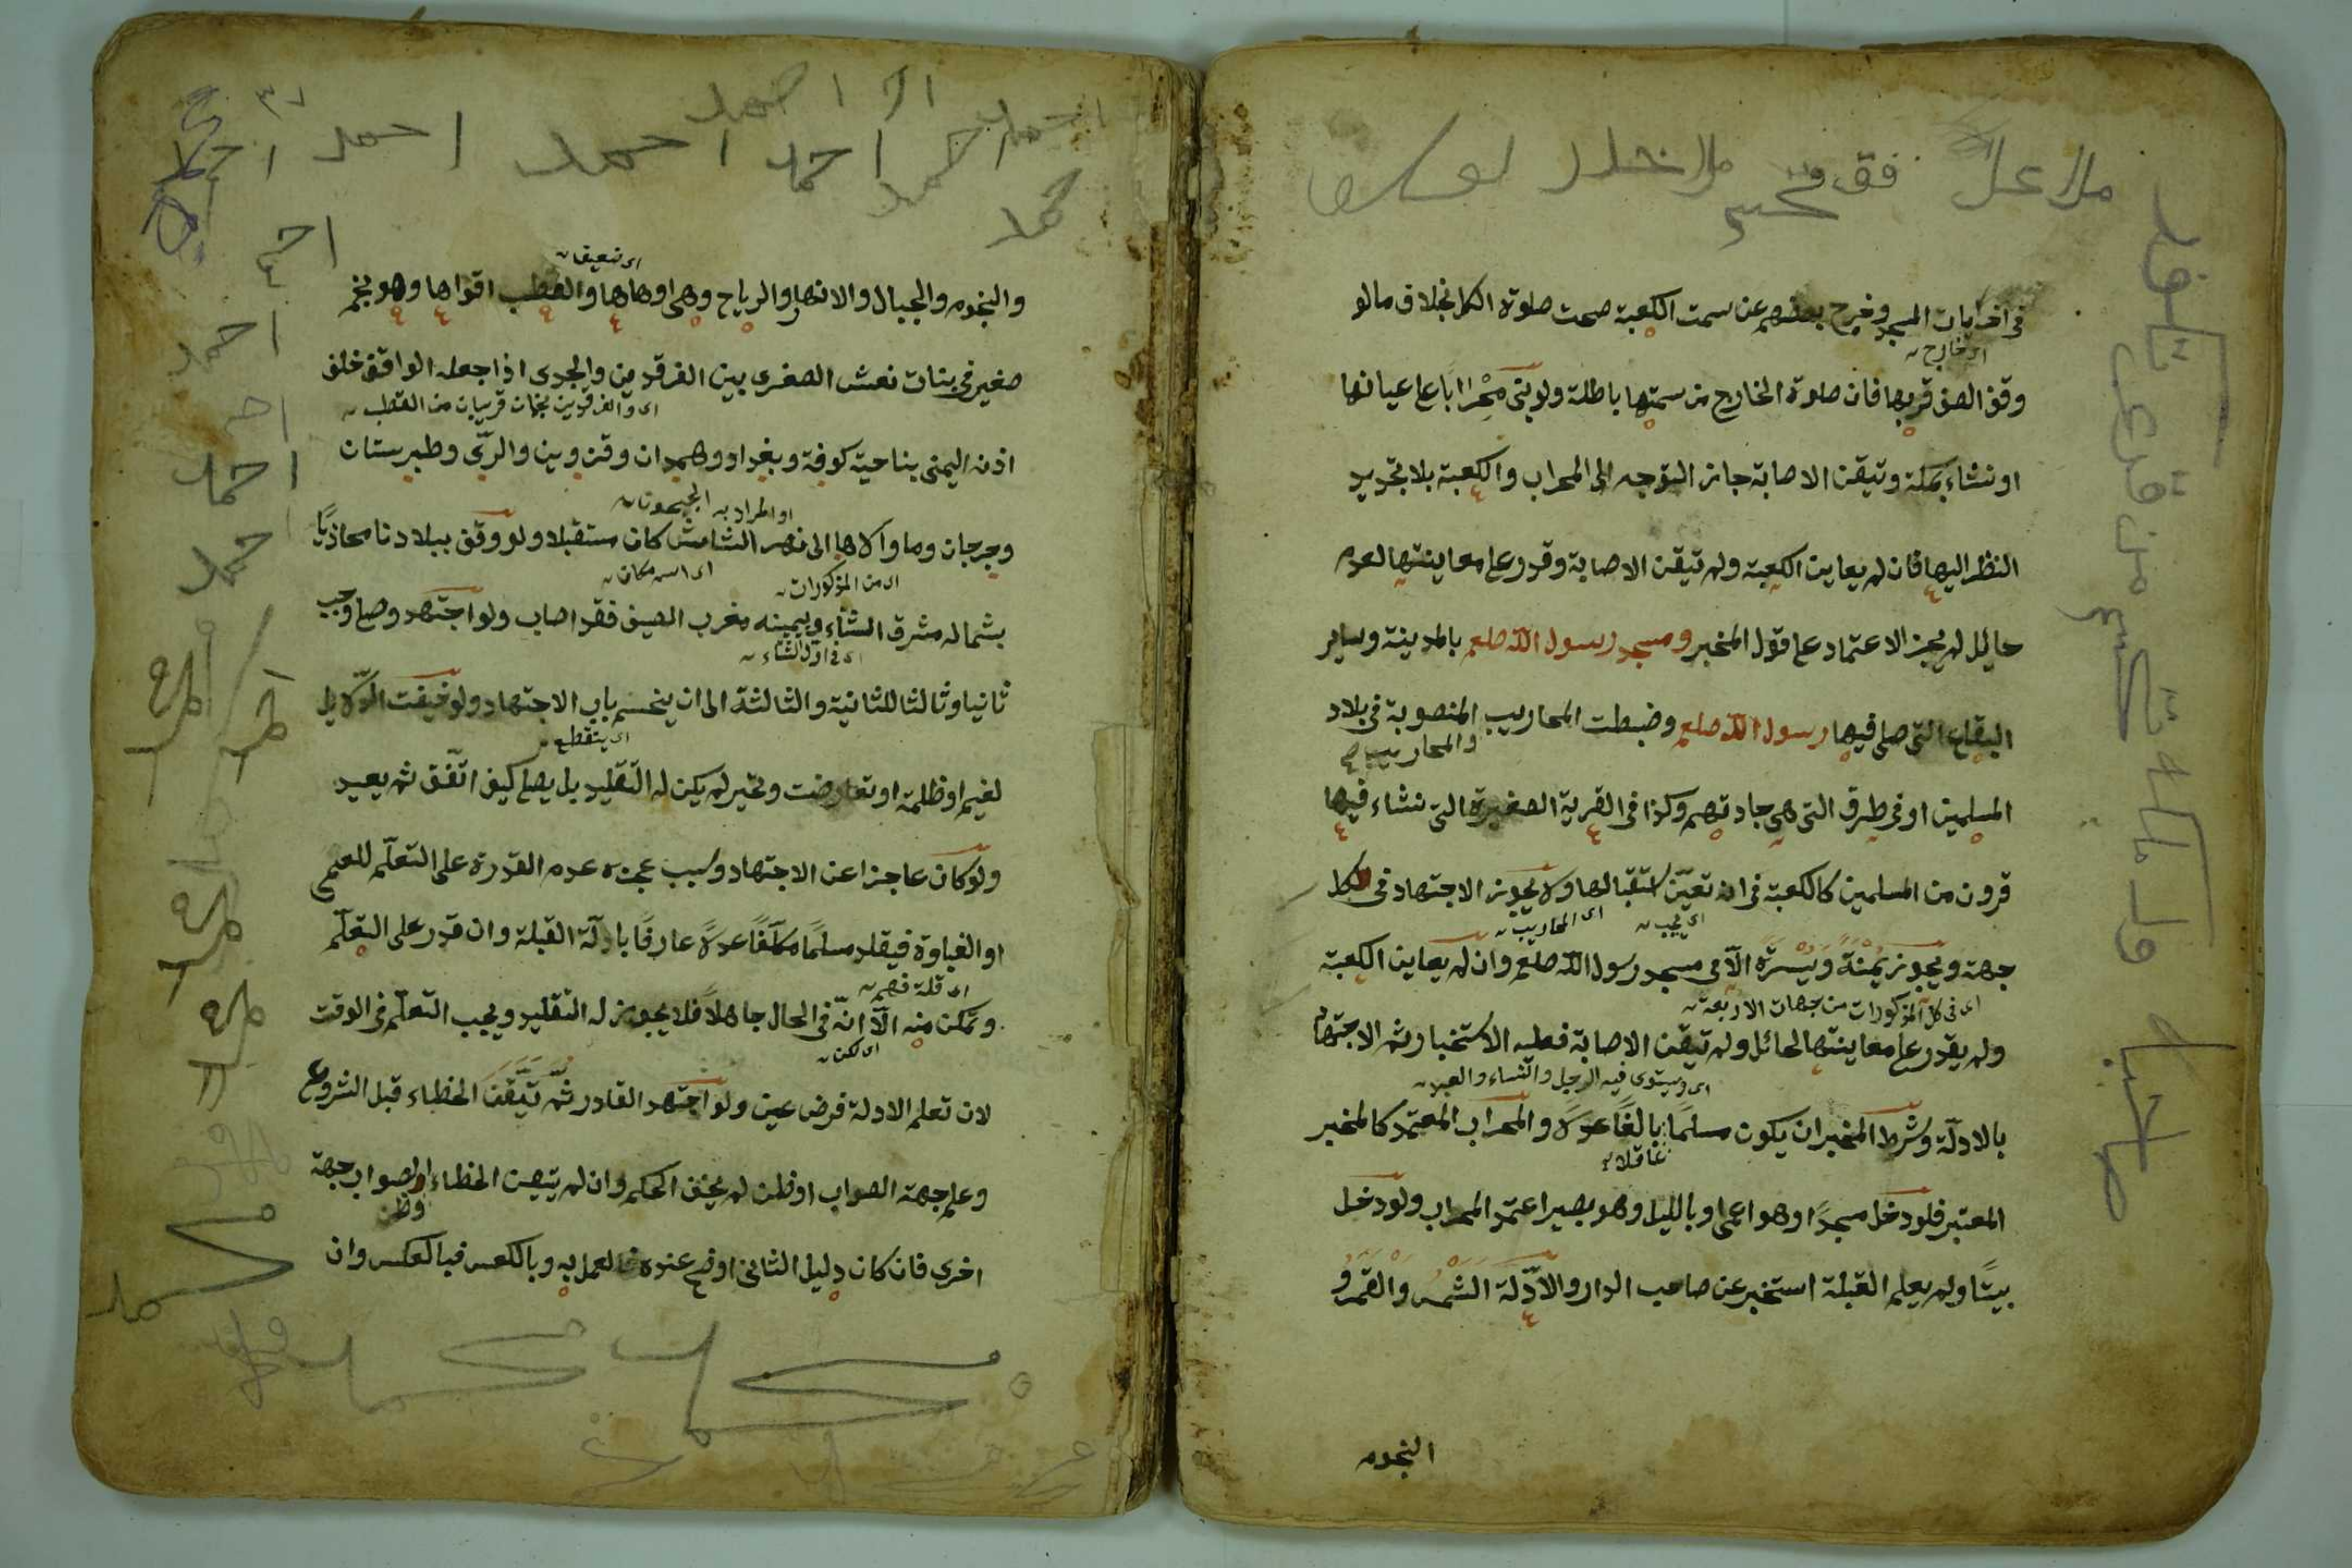 في اخريات المسجد وخرج بعضهم عن سمت الكعبة صحت صلوة الكل بخلاف ما لو
اى خارج
وقف الصف قريبها فان صلوة الخارج من سمتها باطلة ولو بنى محرابا على عيانها
او نشاء بمكة وتيقن الاصابة جاز التوجه الى المحراب والكعبة بلا تجديد
النظر اليها فان لم يعاين الكعبة ولم تيقن الاصابة وقدر على معاينتها لعدم
حايل لم يجز الاعتماد على قول المخبر ومسجد رسول الله صلعم بالمدينة وساير
البقاع التى صلى فيها رسول الله صلعم وضبطت المحاريب المنصوبة فى بلاد
والمحاريب
المسلمين او فى طرق التى هى جادتهم وكذا فى القرية الصغيرة التى نشاء فيها
قرون من المسلمين كالكعبة فى ان تعيّن استقبالها ولا يجوز الاجتهاد فى الكل
اى يجب اى المحاريب
جهة ويجوز يَمْنَةً ويَسْرَةً الّا فى مسجد رسول الله صلعم وان لم يعاين الكعبة
اى فى كل المذكورات من جهات الاربعة
ولم يقدر على معاينتها لحائل ولم تيقن الاصابة فعليه الاستخبار ثم الاجتهاد
اى ويستوى فيه الرجل والنساء والعبد
بالادلّة وشرط المخبر ان يكون مسلمًا بالغًا عدلا والمحراب المعتمد كالمخبر
عاقلا
المعتبر فلو دخل مسجدًا وهو اعمى او بالليل وهو بصير اعتمد المحراب ولو دخل
بيتًا ولم يعلم القبلة استخبر عن صاحب الدار والادّلة الشمس والقمر و
النجوم
اى ضعيفها
والنجوم والجبال والانهار والرياح وهى اوهاها والقطب اقواها وهو نجم
صغير فى بنات نعش الصغرى بين الفرقدين والجدى اذا جعله الواقف خلف
اى والفرقدين نجمان قريبان من القطب
اذنه اليمنى بناحية كوفة وبغداد وهمدان وقزوين والرّى وطبرستان
او المراد به الجيحون
وجرجان وما والاها الى نهر الشاش كان مستقبلا ولو وقف ببلادنا محاذيًا
اى من المذكورات اى اسم مكان
بشماله مشرق الشتاء ويمينه مغرب الصيف فقد اصاب ولو اجتهد وصلى وجب
اى فى اول الشتاء
ثانيا وثالثا للثانية والثالثة الى ان ينحسم باب الاجتهاد ولو خفيت الدّلايل
اى ينقطع
لغيم او ظلمة او تعارضت وتحير لم يكن له التقليد بل يصلى كيف اتّفق ثم يعيد
ولو كان عاجزا عن الاجتهاد وسبب عجزه عدم القدرة على التعلّم للعمى
او الغباوة فيقلد مسلمًا مكلّفًا عدلًا عارفًا بادلّة القبلة وان قدر على التعلّم
اى قلة فهم
وتمكن منه الّا انّه فى الحال جاهلًا فلا يجوز له التقليد ويجب التعلّم فى الوقت
اى لكن
لان تعلم الادلة فرض عين ولو اجتهد القادر ثمّ تَيَقَّنَ الخطاء قبل الشروع
وعلم جهة الصواب او ظن لم يخف الحكم وان لم يتيقن الخطاء والصواب جهة
وظن
اخرى فان كان دليل الثانى اوضح عنده فالعمل به وبالعكس فبالعكس وان
احمد
احمد
احمد
احمد
احمد
احمد